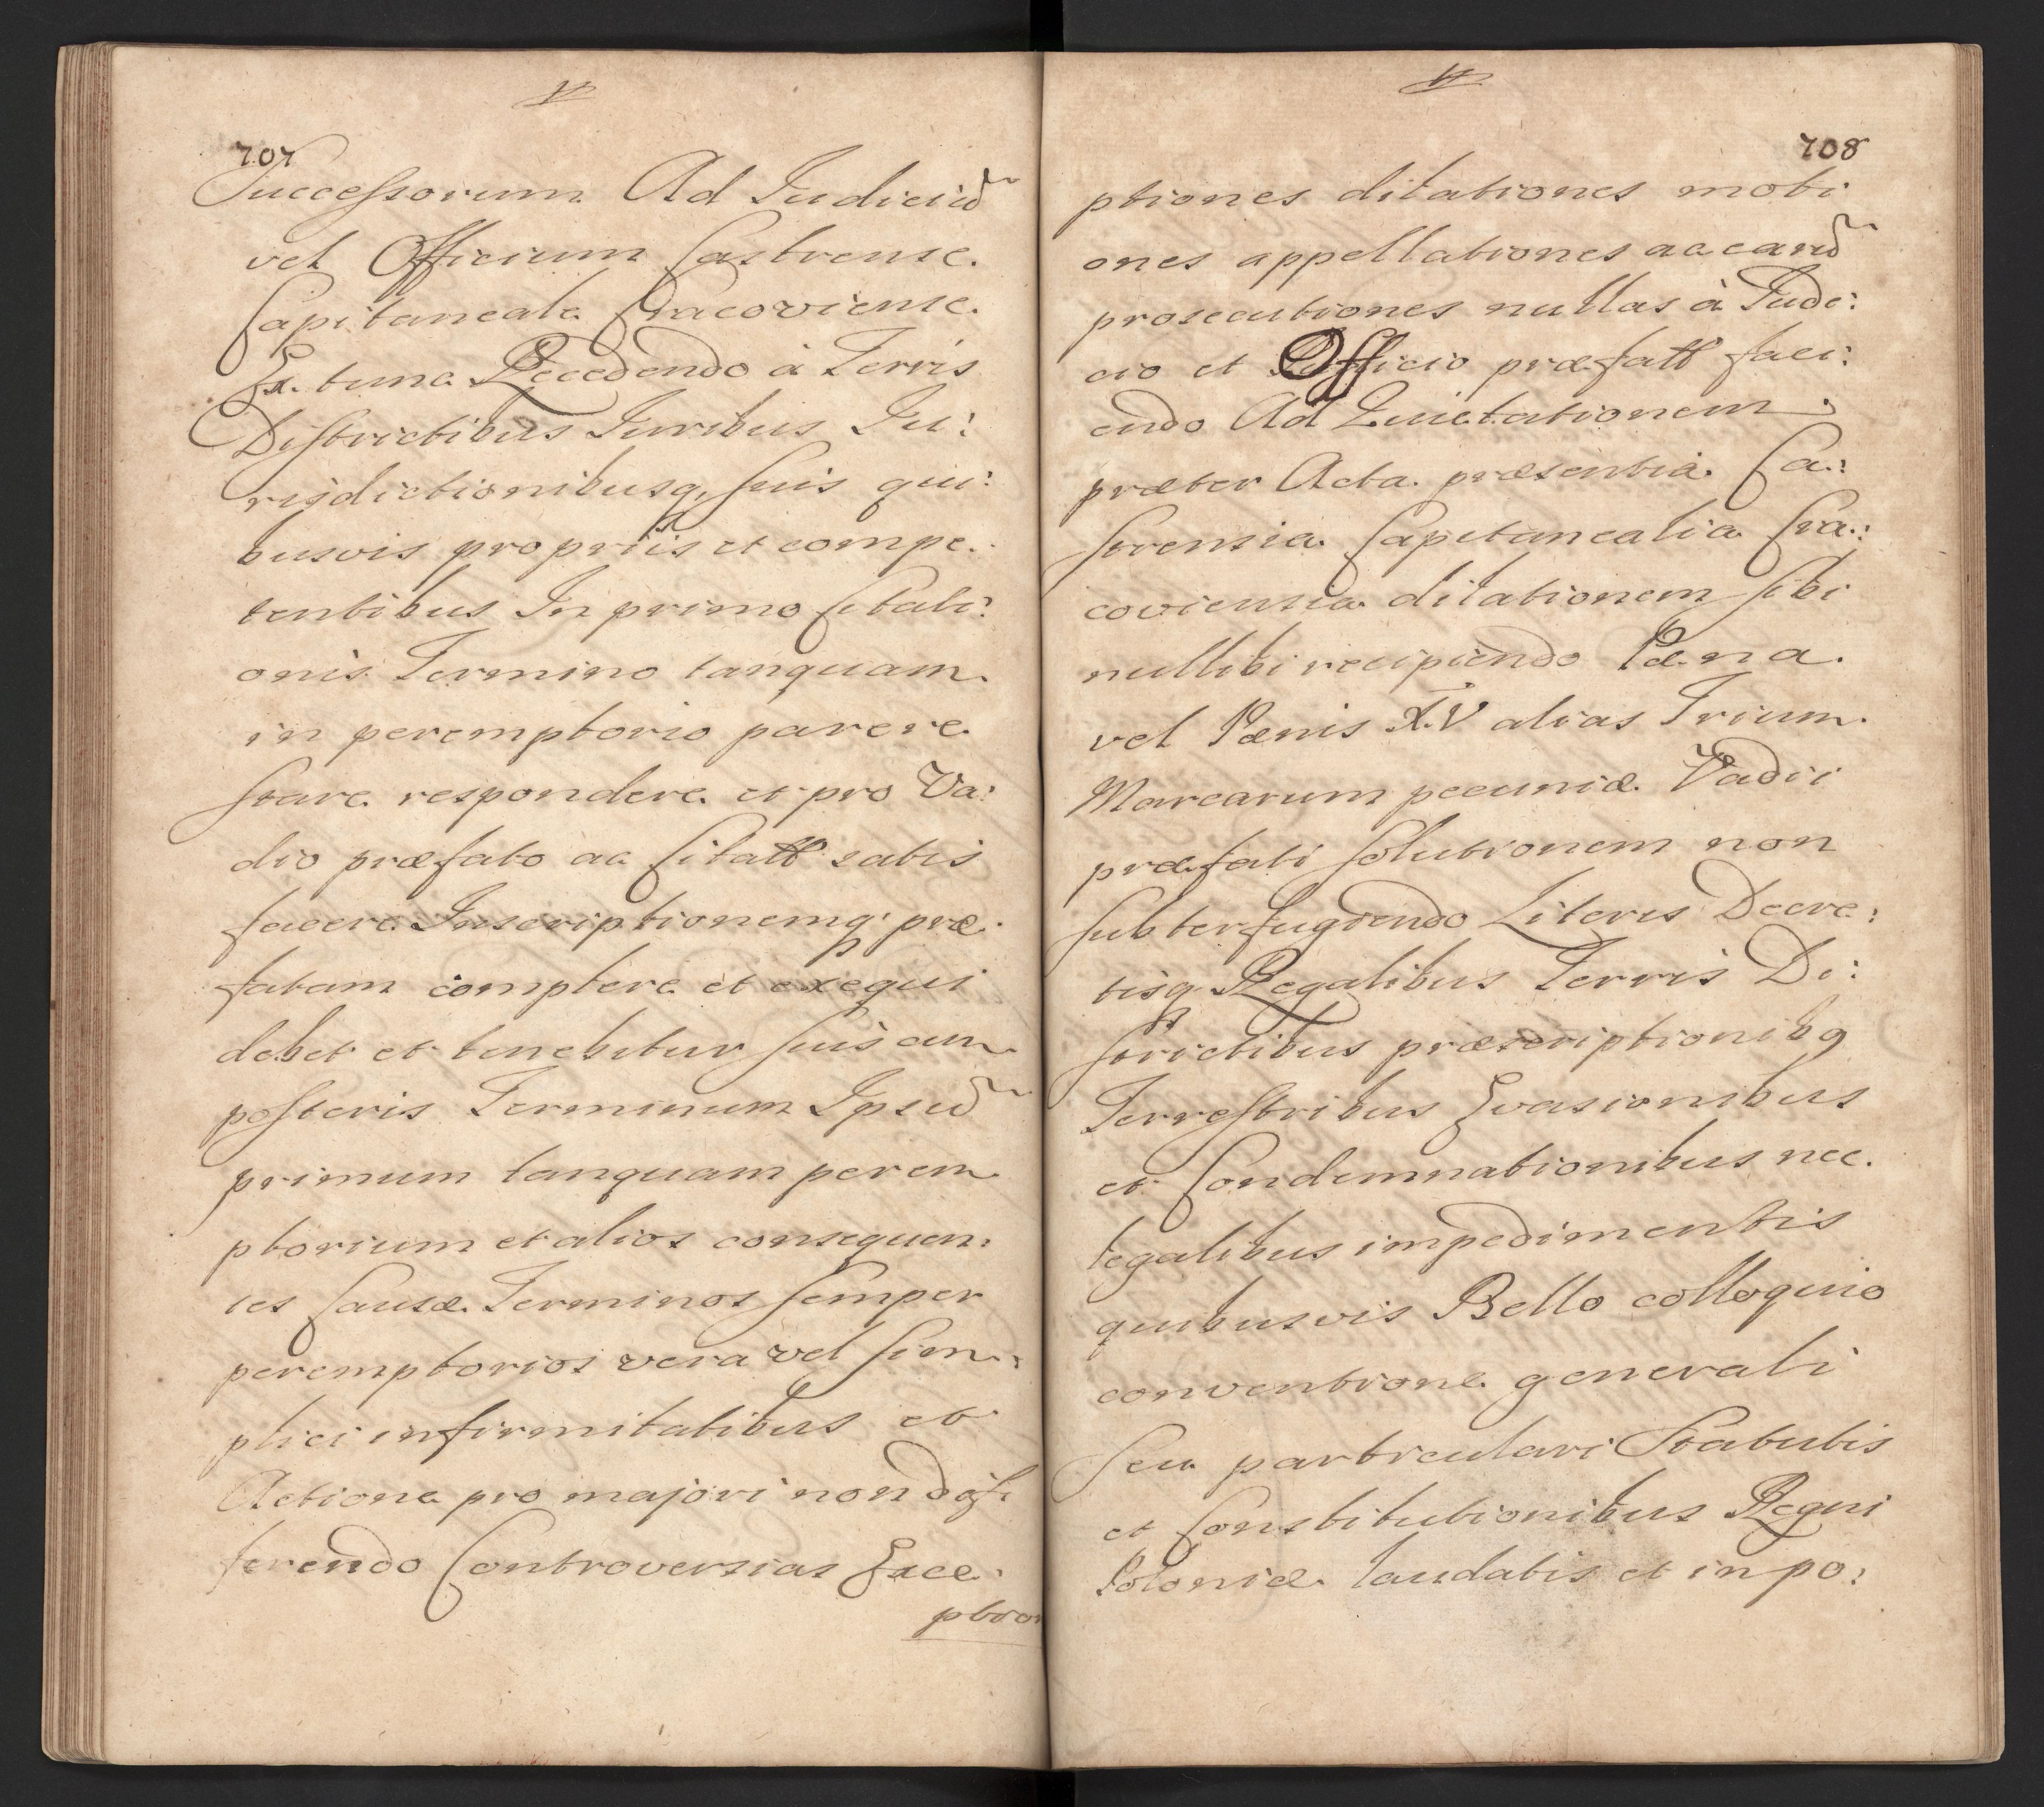 707
Successorum Ad Judiciũ
vel Officium Castrense
Capitaneale Cracoviense
Ex tunc Recedendo à Terris
Districtibus Juribus Ju:
risdictionibusq, suis qui:
busvis propriis et compe:
tentibus In primo Citati:
onis Termino tanquam
in peremptorio parere
stare respondere et pro Va:
dio præfato ac Citatt satis
facere Inscriptionemq, præ:
fatam complere et exequi
debet et tenebitur suis cum
posteris Terminum Ipsũ
primum tanquam perem
ptorium et alios consequen:
tes Causæ Terminos semper
peremptorios vera vel sim:
plici infirmitatibus et
Actione pro majori non dif
ferendo Controversias Exce:
ptio
708
ptiones dilationes moti
ones appellationes ac earũ
prosecutiones nullas à Judi:
cio et Officio præfatt faci:
endo Ad Quietationem
præter Acta præsentia Ca:
strensia Capitanealia Cra:
coviensia dilationem sibi
nullibi recipiendo Pæna
vel Pænis XV alias Trium
Marcarum pecuniæ Vadii
præfati solutionem non
subterfugiendo Literis Decre:
tisq Regalibus Terris Di:
strictibus præscriptionibq
Terrestribus Evasionibus
et Condemnationibus nec
legalibus impedimentis
quibusvis Bello colloquio
conventione generali
seu particulari Statutis
et Constitutionibus Regni
Poloniæ laudatis et in po: